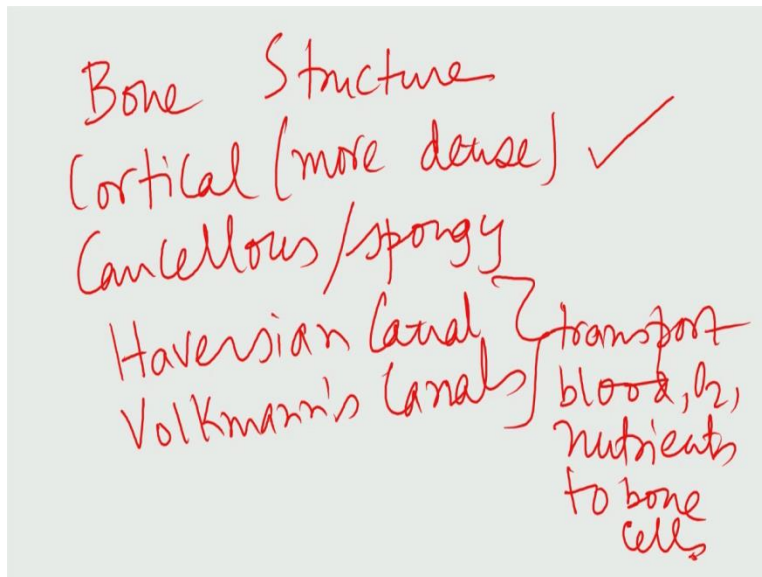 Bone Structure
Cortical (more dense) ✓
Cancellous/spongy
Haversian Canal
Volkmann's Canals
transport
blood, O2,
nutrients
to bone
cells